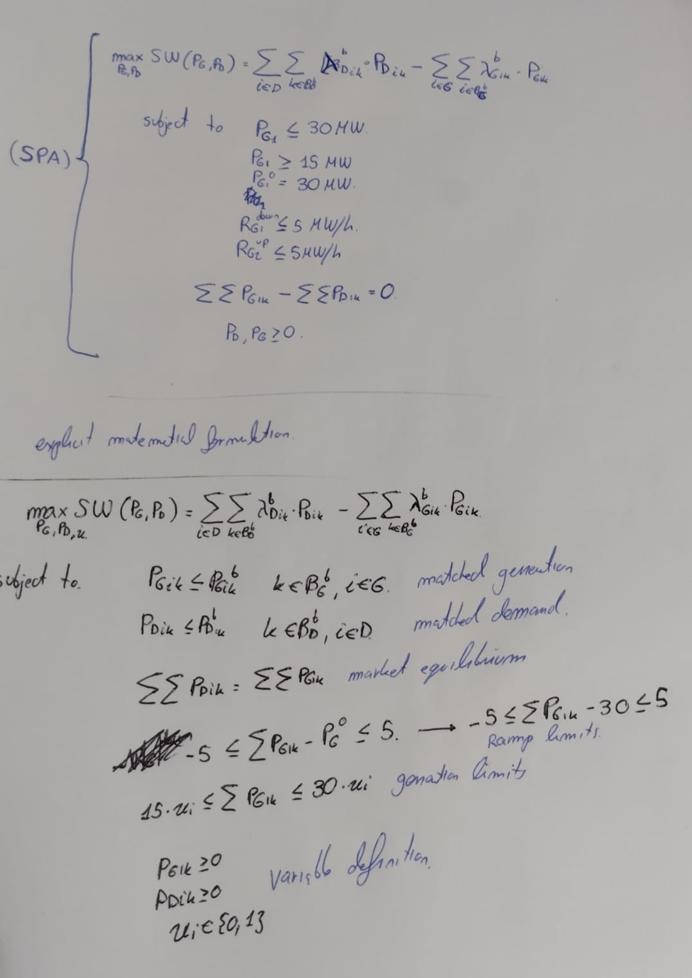 (SPA)
max SW(P_G, P_D) = ∑ ∑ λ^b_Dik · P_Dik - ∑ ∑ λ^b_Gik · P_Gik
P_G, P_D i∈D k∈B^b_D i∈G i∈B^b_G
subject to P_G1 ≤ 30 MW.
P_G1 ≥ 15 MW
P_G1^0 = 30 MW.
R_G1^down ≤ 5 MW/h.
R_G2^up ≤ 5MW/h
∑ ∑ P_Gik - ∑ ∑ P_Dik = 0
P_D, P_G ≥ 0.
explicit matematial formulation.
max SW (P_G, P_D) = ∑ ∑ λ^b_Dik · P_Dik - ∑ ∑ λ^b_Gik · P_Gik
P_G, P_D, u i∈D k∈B^b_D i∈G k∈B^b_G
subject to. P_Gik ≤ P^b_Gik k∈B^b_G, i∈G. matched generation
P_Dik ≤ P^b_Dik k∈B^b_D, i∈D. matched demand.
∑ ∑ P_Dik = ∑ ∑ P_Gik market equilibrium
-5 ≤ ∑ P_Gik - P_G^0 ≤ 5. → -5 ≤ ∑ P_Gik - 30 ≤ 5
Ramp limits.
15 · u_i ≤ ∑ P_Gik ≤ 30 · u_i genation limits
P_Gik ≥ 0
P_Dik ≥ 0 variable definition.
u_i ∈ {0,1}